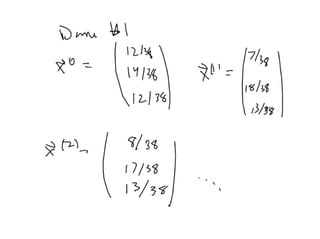 x⃗⁰ = (12/38 14/38 12/38) x⃗⁽¹⁾ = (7/38 18/38 13/38)
x⃗⁽²⁾ = (8/38 17/38 13/38) ...